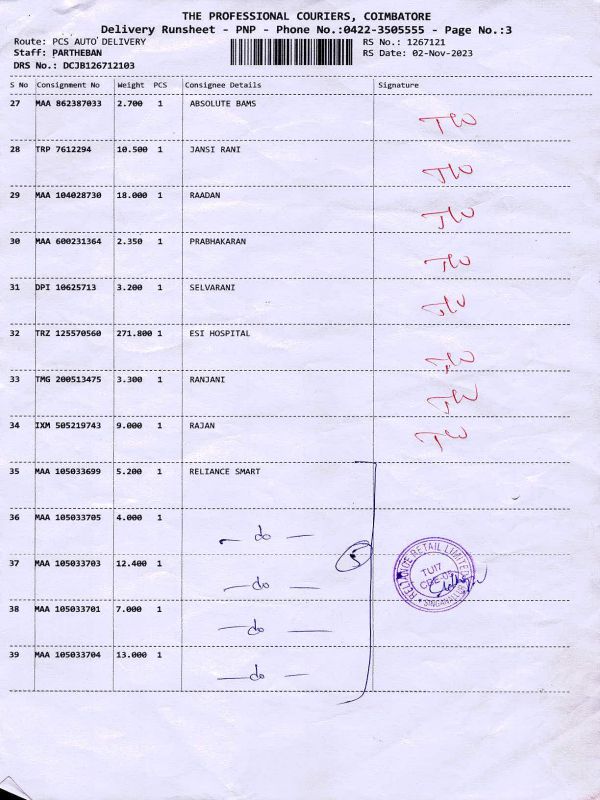 THE PROFESSIONAL COURIERS, COIMBATORE
Delivery Runsheet - PNP - Phone No.:0422-3505555 - Page No.:3
Route: PCS AUTO DELIVERY RS No.: 1267121
Staff: PARTHEBAN RS Date: 02-Nov-2023
DRS No.: DCJB126712103
S No Consignment No Weight PCS Consignee Details Signature
27 MAA 862387033 2.700 1 ABSOLUTE BAMS
28 TRP 7612294 10.500 1 JANSI RANI
29 MAA 104028730 18.000 1 RAADAN
30 MAA 600231364 2.350 1 PRABHAKARAN
31 DPI 10625713 3.200 1 SELVARANI
32 TRZ 125570560 271.800 1 ESI HOSPITAL
33 TMG 200513475 3.300 1 RANJANI
34 IXM 505219743 9.000 1 RAJAN
35 MAA 105033699 5.200 1 RELIANCE SMART
36 MAA 105033705 4.000 1
— do —
37 MAA 105033703 12.400 1
— do —
38 MAA 105033701 7.000 1
— do —
39 MAA 105033704 13.000 1
— do —
5
RELIANCE RETAIL LIMITED
TU17